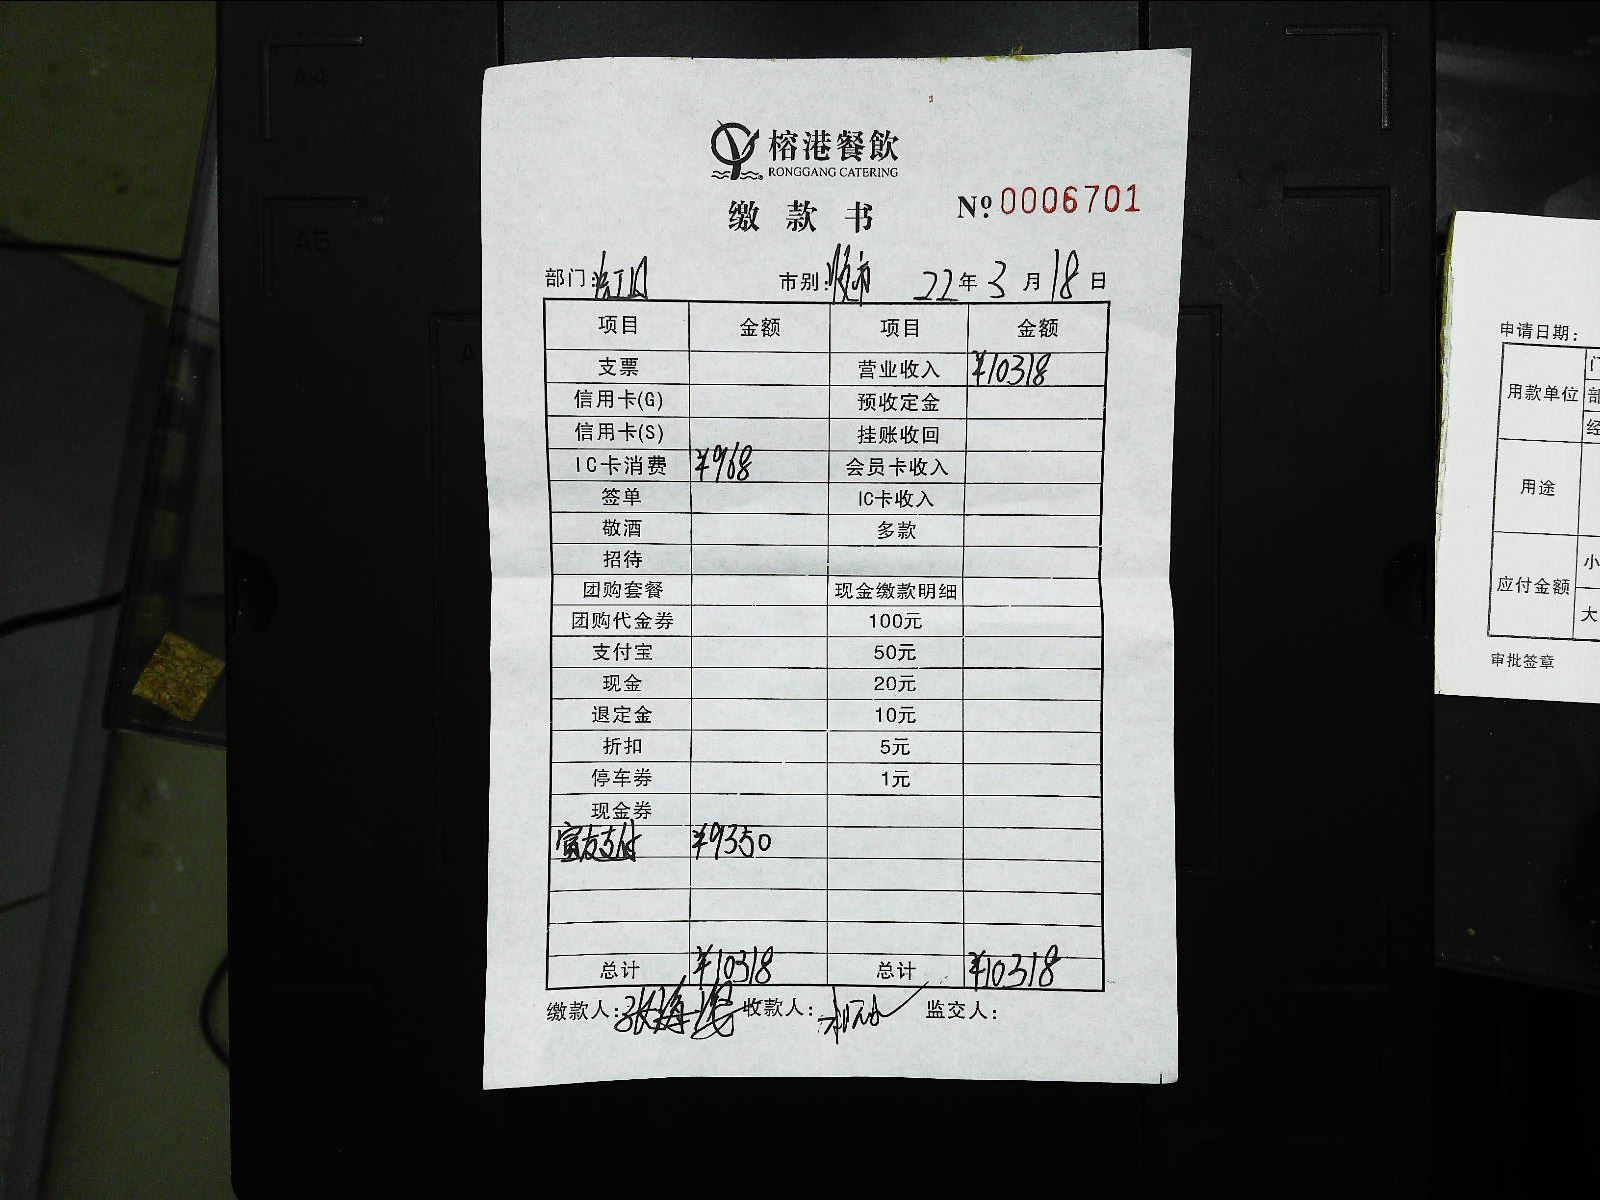 榕港餐飲
RONGGANG CATERING
缴款书 Nº 0006701
部门: 市别: 22年3月18日
项目 金额 项目 金额
支票 营业收入 ¥10318
信用卡(G) 预收定金
信用卡(S) 挂账收回
IC卡消费 ¥968 会员卡收入
签单 IC卡收入
敬酒 多款
招待
团购套餐 现金缴款明细
团购代金券 100元
支付宝 50元
现金 20元
退定金 10元
折扣 5元
停车券 1元
现金券
支付 ¥9350
总计 ¥10318 总计 ¥10318
缴款人: 收款人: 监交人:
申请日期:
用款单位
用途
应付金额 小
大
审批签章
A4
A5